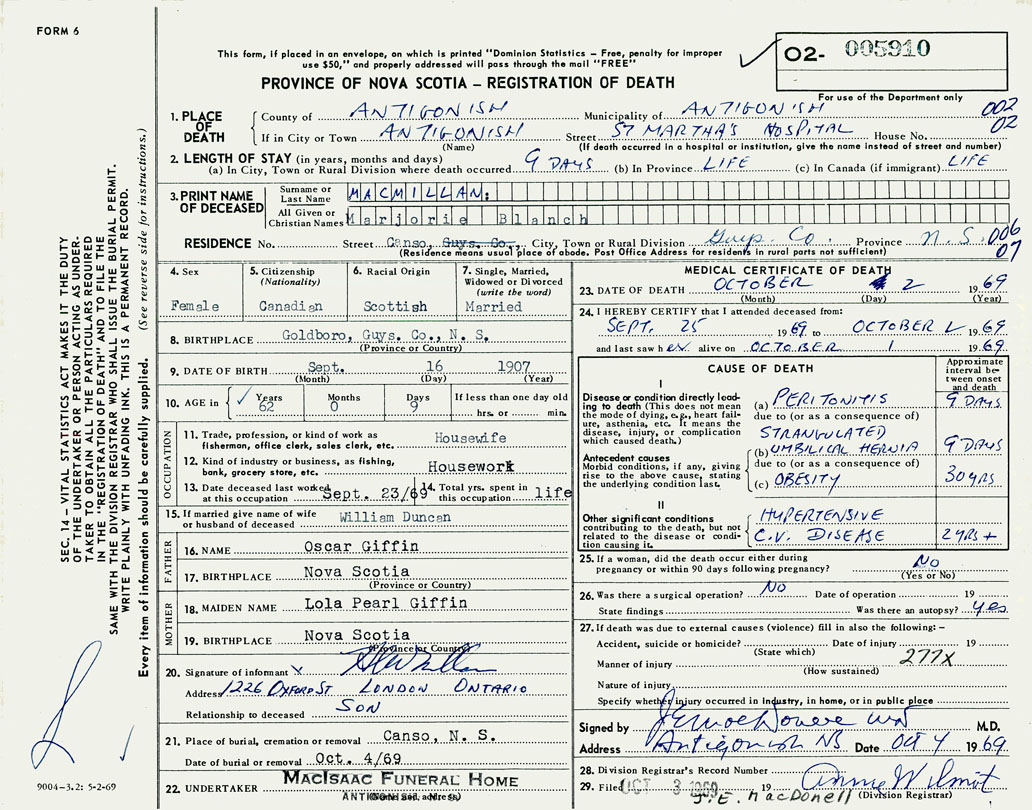 FORM 6
This form, if placed in an envelope, on which is printed "Dominion Statistics – Free, penalty for improper
use $50," and properly addressed will pass through the mail "FREE"
02- 005910
PROVINCE OF NOVA SCOTIA – REGISTRATION OF DEATH
For use of the Department only
1. PLACE OF DEATH
County of ANTIGONISH Municipality of ANTIGONISH 002
If in City or Town ANTIGONISH Street ST MARTHA'S HOSPITAL House No. 02
(Name) (If death occurred in a hospital or institution, give the name instead of street and number)
2. LENGTH OF STAY (in years, months and days)
(a) In City, Town or Rural Division where death occurred 9 DAYS (b) In Province LIFE (c) In Canada (if immigrant) LIFE
3. PRINT NAME OF DECEASED
Surname or Last Name MACMILLAN:
All Given or Christian Names Marjorie Blanch
RESIDENCE No. Street Canso, Guys. Co., City, Town or Rural Division Guys. Co. Province N. S. 006
(Residence means usual place of abode. Post Office Address for residents in rural parts not sufficient) 07
4. Sex
Female
5. Citizenship
(Nationality)
Canadian
6. Racial Origin
Scottish
7. Single, Married,
Widowed or Divorced
(write the word)
Married
8. BIRTHPLACE Goldboro, Guys. Co., N. S.
(Province or Country)
9. DATE OF BIRTH Sept. 16 1907
(Month) (Day) (Year)
10. AGE in Years Months Days If less than one day old
62 0 9 hrs. or min.
OCCUPATION
11. Trade, profession, or kind of work as
fisherman, office clerk, sales clerk, etc. Housewife
12. Kind of industry or business, as fishing,
bank, grocery store, etc. Housework
13. Date deceased last worked
at this occupation Sept. 23/69
14. Total yrs. spent in
this occupation life
15. If married give name of wife
or husband of deceased William Duncan
FATHER
16. NAME Oscar Giffin
17. BIRTHPLACE Nova Scotia
(Province or Country)
MOTHER
18. MAIDEN NAME Lola Pearl Giffin
19. BIRTHPLACE Nova Scotia
(Province or Country)
20. Signature of informant X
Address 1226 OXFORD ST LONDON ONTARIO
Relationship to deceased SON
21. Place of burial, cremation or removal Canso, N. S.
Date of burial or removal Oct. 4/69
22. UNDERTAKER MACISAAC FUNERAL HOME
MEDICAL CERTIFICATE OF DEATH
23. DATE OF DEATH OCTOBER 2 1969
(Month) (Day) (Year)
24. I HEREBY CERTIFY that I attended deceased from:
SEPT. 25 1969 to OCTOBER 2 1969
and last saw her alive on OCTOBER 1 1969.
CAUSE OF DEATH
Approximate interval between onset and death
I
Disease or condition directly leading to death (This does not mean the mode of dying, e.g., heart failure, asthenia, etc. It means the disease, injury, or complication which caused death.)
(a) PERITONITIS 9 DAYS
due to (or as a consequence of)
STRANGULATED
(b) UMBILICAL HERNIA 9 DAYS
Antecedent causes
Morbid conditions, if any, giving rise to the above cause, stating the underlying condition last.
due to (or as a consequence of)
(c) OBESITY 30 YRS
II
Other significant conditions
contributing to the death, but not related to the disease or condition causing it.
HYPERTENSIVE
C.V. DISEASE 2 YRS +
25. If a woman, did the death occur either during
pregnancy or within 90 days following pregnancy? No
(Yes or No)
26. Was there a surgical operation? NO Date of operation 19
State findings Was there an autopsy? Yes
27. If death was due to external causes (violence) fill in also the following: –
Accident, suicide or homicide? Date of injury 19
(State which)
Manner of injury 277X
(How sustained)
Nature of injury
Specify whether injury occurred in industry, in home, or in public place
Signed by M.D.
Address Antigonish NS Date Oct 4 1969
28. Division Registrar's Record Number
29. Filed OCT 3 1969 19
J.E. MacDonell (Division Registrar)
SEC. 14 – VITAL STATISTICS ACT MAKES IT THE DUTY
OF THE UNDERTAKER OR PERSON ACTING AS UNDER-
TAKER TO OBTAIN ALL THE PARTICULARS REQUIRED
IN THE "REGISTRATION OF DEATH" AND TO FILE THE
SAME WITH THE DIVISION REGISTRAR WHO SHALL ISSUE THE BURIAL PERMIT.
WRITE PLAINLY WITH UNFADING INK. THIS IS A PERMANENT RECORD.
Every item of information should be carefully supplied. (See reverse side for instructions.)
9004-3.2: 5-2-69